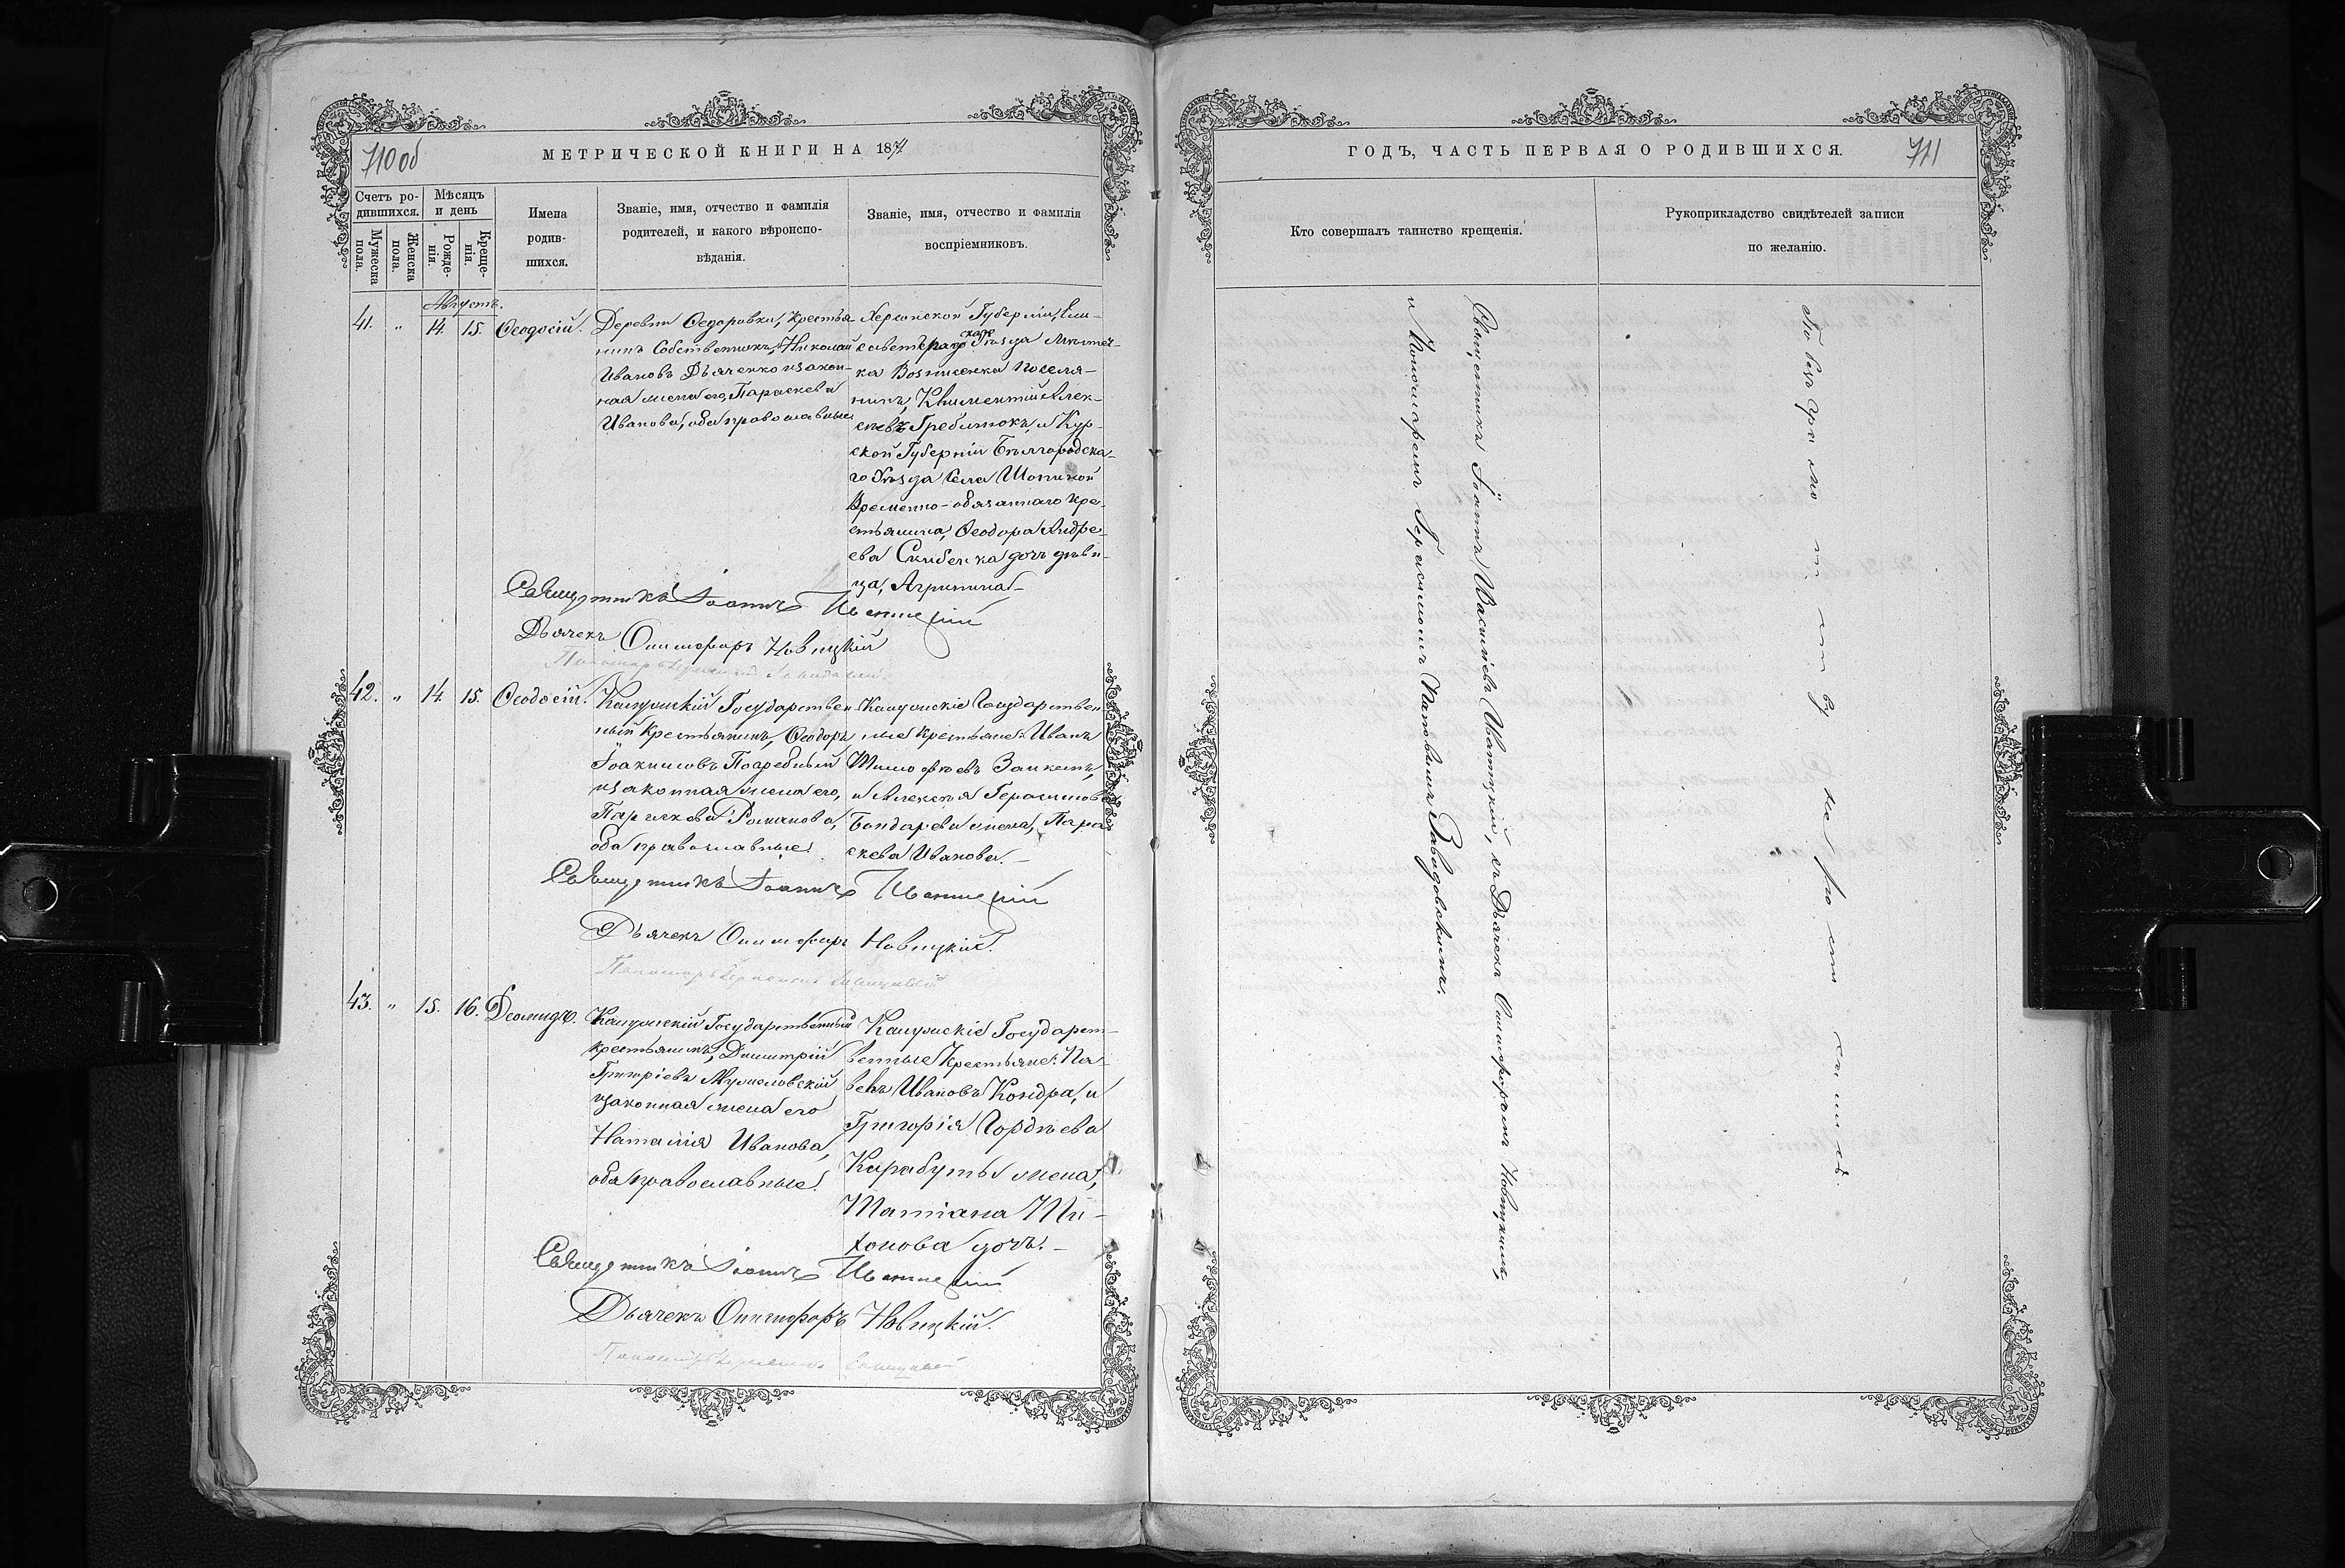 710 об
МЕТРИЧЕСКОЙ КНИГИ НА 1871.
Счетъ ро-
дившихся.
Мужеска
пола.
Женска
пола.
Мѣсяцъ
и день
Рожде-
нія.
Креще-
нія.
Имена
родив-
шихся.
Званіе, имя, отчество и фамилія
родителей, и какого вѣроиспо-
вѣданія.
Званіе, имя, отчество и фамилія
воспріемниковъ.
Августъ.
41. „ 14. 15. Ѳеодосій.
Деревни Ѳедоровки, Крестья
нинъ Собственникъ, Николай
Ивановъ Дьяченко и закон-
ная жена его, Параскева
Иванова, оба православные
Херсонской Губерніи, Ели-
саветградскаго Уѣзда Мѣстеч-
ка Вознесенка Поселя-
нинъ, Климентій Алек-
сѣевъ Гребенюкъ, и Кур-
ской Губерніи Бѣлгородска-
го Уѣзда Села Шопиной
Временно-обязаннаго Кре-
стьянина, Ѳеодора Андре-
ева Скибенка дочь дѣви-
ца, Агрипина
Священникъ Іоаннъ Иваницкій
Дьячекъ Онисифоръ Новицкій
42. „ 14. 15. Ѳеодосій.
Государствен
ный Крестьянинъ, Ѳеодоръ
Іоакимовъ Погребный
и законная жена его,
Параскева Романова,
оба православные.
Государствен
ные Крестьяне: Иванъ
Тимофѣевъ
и Алексѣя Герасимова
Бондарева жена, Пара
скева Иванова.
Священникъ Іоаннъ Иваницкій
Дьячекъ Онисифоръ Новицкій.
43. „ 15. 16. Діомидъ.
Государственный
крестьянинъ, Димитрій
Григоріевъ
и законная жена его
Наталія Иванова,
оба православные.
Государст-
венные Крестьяне: Па-
велъ Ивановъ Кондра, и
Григорія Гордѣева
Карабуты жена,
Татіана Ти-
хонова дочь.
Священникъ Іоаннъ Иваницкій
Дьячекъ Онисифоръ Новицкій.
ГОДЪ, ЧАСТЬ ПЕРВАЯ О РОДИВШИХСЯ.
711
Кто совершалъ таинство крещенія.
Рукоприкладство свидѣтелей записи
по желанію.
Священникъ Іоаннъ Васильевъ Иваницкій, съ Дьячекъ Онисифоромъ Новицкимъ,
и Пономаремъ Герасимомъ Завадовскимъ.